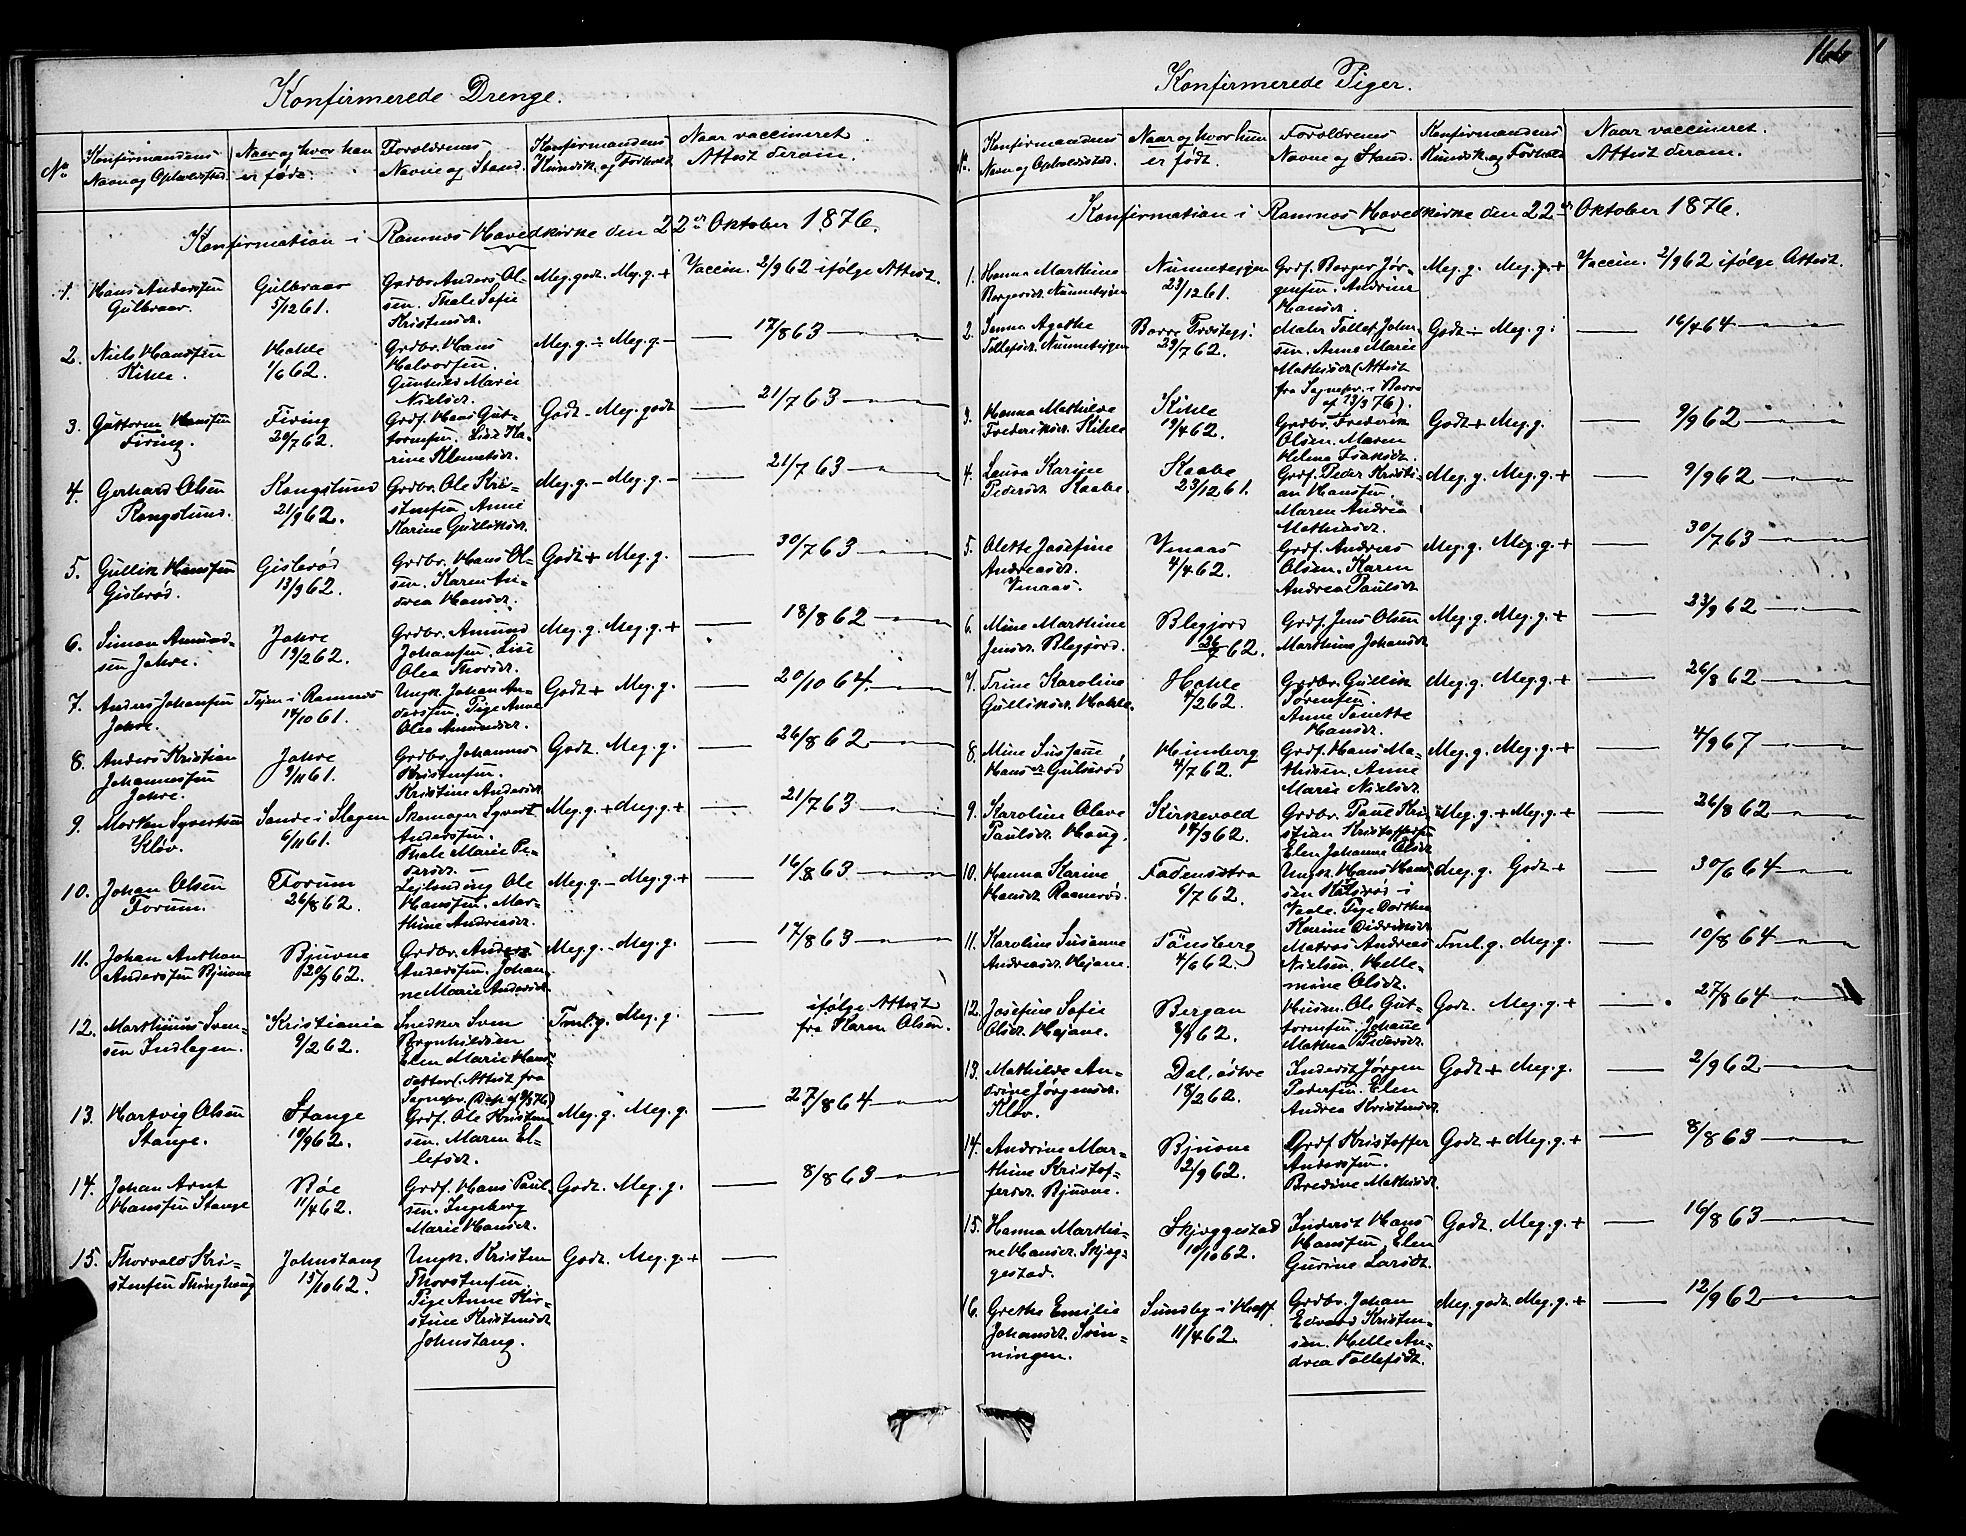 166
Konfirmerede Drenge.
No
Konfirmandens
Navn og Opholdssted.
Naar og hvor han
er føda.
Forældrenes
Navne og Stand.
Konfirmandens
Kundsk. og Forhold
Naar vaccineret
Attest derom.
Konfirmation i Ramnæs Hovedkirke den 22de Oktober 1876.
1. Hans Andersen
Gulbraar.
Gulbraar
5/1261.
Grdbr. Anders Ol-
sen. Thale Sofie
Kristensdt.
Meg. godt. Meg. g. +
Vaccin. 2/962 ifølge Attest.
2. Niels Hansen
Kihle.
Hohle
1/662.
Grdbr. Hans
Halvorsen.
Gunhild Marie
Nielsdt.
Meg. g. ÷ Meg. g. –
17/863
3. Guttorm Hansen
Firing.
Firing
20/762.
Grdf. Hans Gut-
tormsen. Lise Ka-
rine Klemetsdt.
Godt – Meg. godt
21/763
4. Gerhard Olsen
Kongslund.
Kongslund
21/962.
Grdbr. Ole Kri-
stensen, Anne
Karine Gulliksdt.
Meg. g. – Meg. g. –
21/763
5. Gullik Hansen
Gislerød.
Gislerød
13/962.
Grdbr. Hans Ol-
sen. Karen An-
drea Hansdt.
Godt + Meg. g.
30/763
6. Simon Amund-
sen Jahre.
Jahre
13/262.
Grdbr. Amund
Johansen. Lise
Olea Thorsdt.
Meg. g. Meg. g. +
18/862
7. Anders Johansen
Jahre.
Tejen i Ramnes
14/1061.
Ungk. Johan An-
dersen. Pige Anne
Olea Amundsdt.
Godt + Meg. g.
20/1064
8. Anders Kristian
Johannesen
Jahre.
Jahre
9/1161.
Grdbr. Johannes
Kristensen.
Kristine Andersdt.
Godt. Meg. g.
26/862
9. Morten Syvertsen
Kløv.
Sande i Slagen
6/1161.
Skomager Syvert
Andersen.
Thale Marie Pe-
dersdt.
Meg. g. + Meg. g. +
21/763
10. Johan Olsen
Forum.
Forum
26/862.
Lejlending Ole
Hansen. Mar-
thine Andreasdt.
Meg. g. – Meg. g. +
16/863
11. Johan Anthon
Andersen Bjuvne
Bjuvne
20/962.
Grdbr. Anders
Andersen. Johan-
ne Marie Andersdt.
Meg. g. – Meg. g.
17/863
12. Marthinus Sven-
sen Indlagen.
Kristiania
9/262.
Snedker Sven
Brynhildsen
Elen Marie Hans-
datter (Attest fra
Sognepr.
Tml. g. Meg. g.
ifølge Attest
fra Karen Olsen.
13. Hartvig Olsen
Stange.
Stange
10/962.
Grdf. Ole Kristen-
sen. Maren El-
lefsdt.
Meg. g. Meg. g.
27/864
14. Johan Arnt
Hansen Stange
Røe
11/462.
Grdf. Hans Paul-
sen. Ingeberg
Marie Hansdt.
Godt. Meg. g.
8/863
15. Thorvald Kri-
stensen Thinghaug
Johnstang
15/1062.
Ungk. Kristen
Thorstensen.
Pige Anne Kir-
stine Kristensdt
Johnstang.
Godt. Meg. g. +
Konfirmerede Piger.
No.
Konfirmandens
Navn og Opholdssted.
Naar og hvor hun
er født.
Forældrenes
Navne og Stand.
Konfirmandens
Kundsk. og Forhold
Naar vaccineret.
Attest derom.
Konfirmation i Ramnæs Hovedkirke den 22de Oktober 1876.
1. Hanna Marthine
Borgersdt. Nunnetejen
Nunnetejen
23/1261.
Grdf. Borger Jør-
gensen. Andrine
Hansdt.
Meg. g. Meg. g. +
Vaccin. 2/962 ifølge Attest.
2. Senna Agathe
Tollefsdt. Nunnetejen
Borre Præstegj.
29/762.
Maler Tollef John-
sen. Anne Marie
Mathisdt. (Attest
fra Sognepr. i Borre
af 13/376).
Godt – Meg. g.
16/464
3. Hanna Mathilde
Frederiksdt. Kihle
Kihle
19/462.
Grdbr. Frederik
Olsen. Maren
Helena Isaksdt.
Godt + Meg. g.
9/962
4. Laura Karine
Pedersdt. Kaabe.
Kaabe
23/1261.
Grdf. Peder Kristi-
an Hansen.
Maren Andrea
Mathiasdt.
Meg. g. Meg. g. +
9/962
5. Olette Josefine
Andreasdt.
Vinaas.
Vinaas
4/462.
Grdf. Andreas
Olsen. Karen
Andrea Paulsdt
Meg. g. Meg. g. +
30/763
6. Mine Marthine
Jensdt. Blegjord.
Blegjord
26/762.
Grdf. Jens Olsen
Marthine Johansdt
Meg. g. Meg. g. +
23/962
7. Trine Karoline
Gulliksdt. Hohle.
Hohle
4/262.
Grdbr. Gullik
Sørensen.
Anne Tonette
Hansdt.
Meg. g. Meg. g. +
26/862
8. Mine Susanne
Hansdt. Gulsrød
Himberg
4/762.
Grdf. Hans Ma-
thisen. Anne
Marie Nielsdt.
Meg. g. Meg. g. +
4/967
9. Karoline Olave
Paulsdt. Haug.
Kirkevold
14/362.
Grdbr. Paul Kri-
stian Kristoffersen
Elen Johanne Olsdt
Meg. g. + Meg. g. +
26/862
10. Hanna Karine
Hansdt Raanerød.
Fadensstra
6/762.
Ungk. Hans Hans-
sen
Vaale. Pige Dorthea
Karine Didriksdt
Meg. g. Godt +
30/664
11. Karoline Susanne
Andreasdt. Hejane.
Tönsberg
4/662.
Matros Andreas
Nielsen. Helle-
mine Olsdt.
Tml. g. Meg. g.
10/864
12. Josefine Sofie
Olsdt. Hejane.
Bergan
8/962.
Husm. Ole Gut-
tormsen. Johanne
Mathea Pedersdt.
Godt. Meg. g. +
27/864
13. Mathilde An-
drine Jørgensdt.
Kløv.
Dal, östre
18/262.
Inderst Jørgen
Pedersen. Elen
Andrea Kristensdt.
Godt + Meg. g.
2/962
14. Andrine Mar-
thine Kristof-
fersdt. Bjuvne.
Bjuvne
2/962.
Grdf. Kristoffer
Andersen.
Bredine Mathisdt.
Godt + Meg. g. +
8/863
15. Hanna Marthi-
ne Hansdt. Skjeg-
gestad.
Skjeggestad
10/1062.
Inderst Hans
Hansen, Elen
Gurine Larsdt.
Godt. Meg. g. +
16/863
16. Grethe Emilie
Johansdt. Svin-
ningen.
Sundby i Hoff
11/462.
Grdbr. Johan
Edvard Kristen-
sen. Helle An-
drea Tollefsdt.
Meg. godt. Meg. g. +
12/962